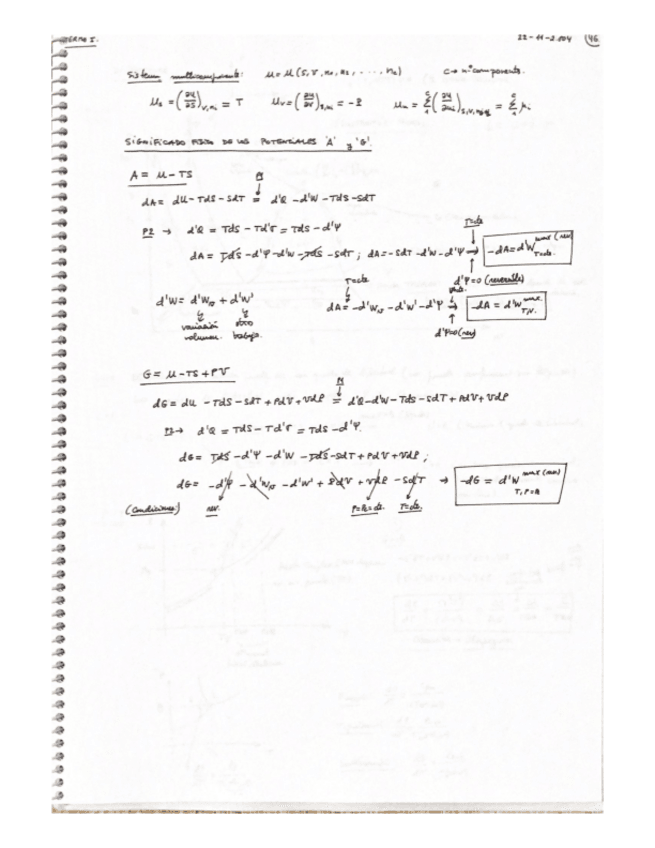 TERMO I. 22-11-2.004 46
Sistema multicomponente: u = u(S, V, n₁, n₂, ..., n_c) C → nº componentes.
u_S = (∂u/∂S)_{V,n_i} = T u_V = (∂u/∂V)_{S,n_i} = -P u_n = Σ₁^C (∂u/∂n_i)_{S,V,n_j≠i} = Σ₁^C μ_i
SIGNIFICADO FISICO DE LOS POTENCIALES 'A' y 'G'.
A = u - TS
P1
dA = du - TdS - SdT = d'Q - d'W - TdS - SdT
P2 → d'Q = TdS - Td'σ = TdS - d'Ψ
T=cte
dA = TdS - d'Ψ - d'W - TdS - SdT ; dA = -SdT - d'W - d'Ψ → -dA = d'W^{max (rev)}_{T=cte.}
d'Ψ=0 (reversible)
T=cte
d'W = d'W_v + d'W' dA = -d'W_v - d'W' - d'Ψ → -dA = d'W^{max.}_{T,V.}
variación otro
volumen. trabajo. d'Ψ=0 (rev)
G = u - TS + PV
P1
dG = du - TdS - SdT + PdV + VdP = d'Q - d'W - TdS - SdT + PdV + VdP
P2 → d'Q = TdS - Td'σ = TdS - d'Ψ.
dG = TdS - d'Ψ - d'W - TdS - SdT + PdV + VdP ;
dG = -d'Ψ - d'W_v - d'W' + PdV + VdP - SdT → -dG = d'W^{max (rev)}_{T, P=}
(Condiciones) rev. cte. T=cte.